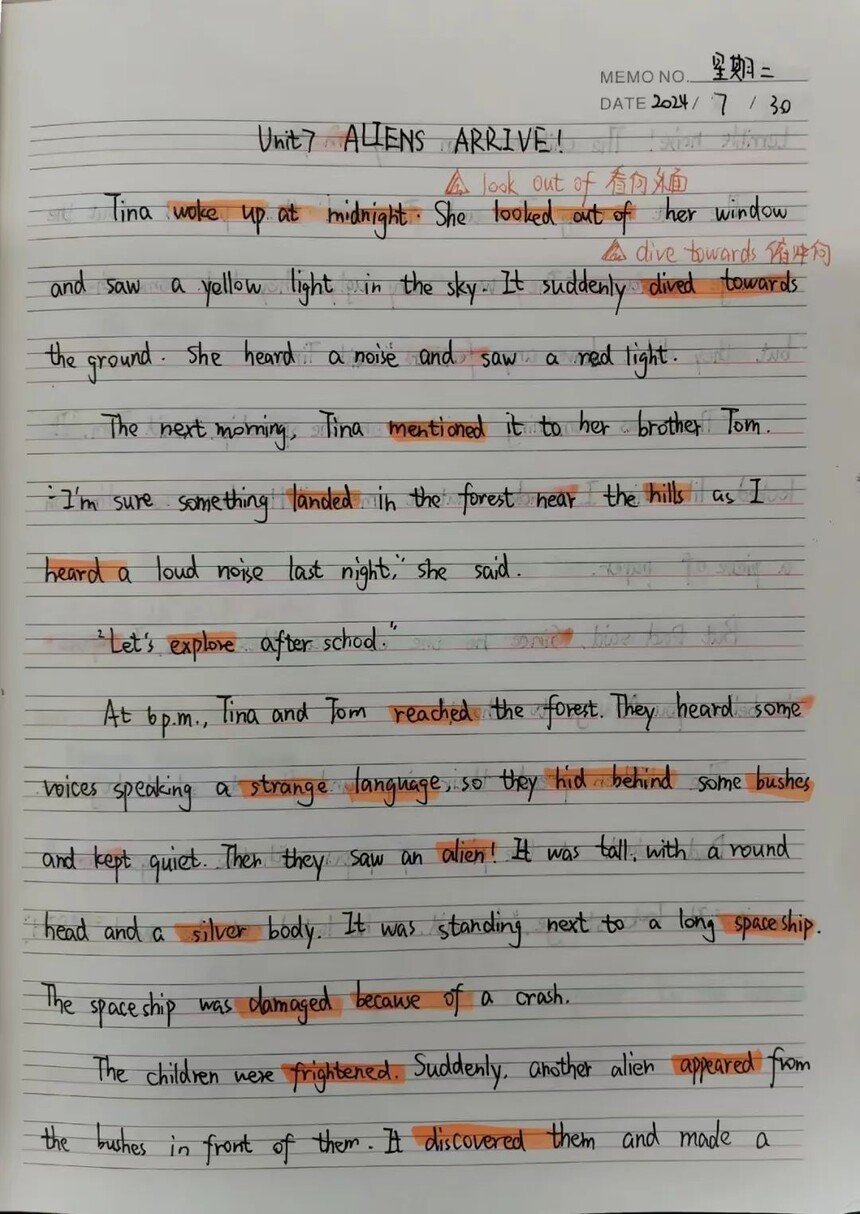 MEMO NO. 星期二
DATE 2024 / 7 / 30
Unit7 ALIENS ARRIVE!
look out of 看向外面
Tina woke up at midnight. She looked out of her window
dive towards 俯冲向
and saw a yellow light in the sky. It suddenly dived towards
the ground. She heard a noise and saw a red light.
The next morning, Tina mentioned it to her brother Tom.
"I'm sure something landed in the forest near the hills as I
heard a loud noise last night," she said.
"Let's explore after school."
At 6 p.m., Tina and Tom reached the forest. They heard some
voices speaking a strange language, so they hid behind some bushes
and kept quiet. Then they saw an alien! It was tall, with a round
head and a silver body. It was standing next to a long spaceship.
The spaceship was damaged because of a crash.
The children were frightened. Suddenly, another alien appeared from
the bushes in front of them. It discovered them and made a